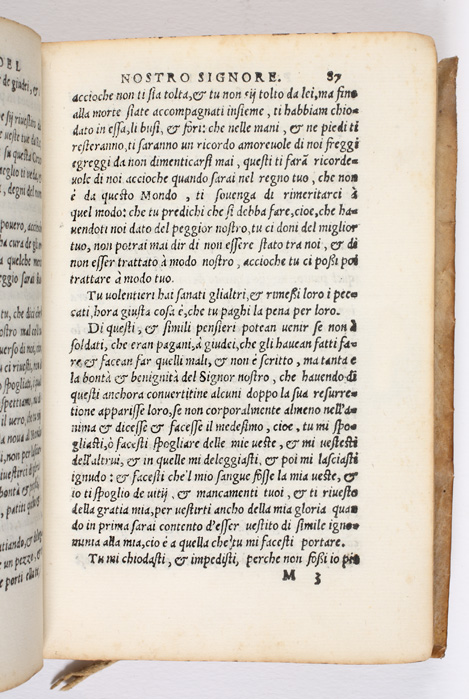 DEL
NOSTRO SIGNORE. 87
accioche non ti sia tolta,& tu non sij tolto da lei,ma fino
alla morte siate accompagnati insieme, ti habbiam chio-
dato in essa,li busi, & fori: che nelle mani, & ne piedi ti
resteranno,ti saranno un ricordo amoreuole di noi freggi
egreggi da non dimenticarsi mai, questi ti farā ricorde-
uole di noi accioche quando sarai nel regno tuo, che non
è da questo Mondo, ti souenga di rimeritarci à
quel modo: che tu predichi che si debba fare,cioe,che ha-
uendoti noi dato del peggior nostro,tu ci doni del miglior
tuo, non potrai mai dir di non essere stato tra noi, & di
non esser trattato à modo nostro, accioche tu ci possi poi
trattare à modo tuo.
Tu uolentieri hai sanati glialtri,& rimessi loro i pec-
cati,hora giusta cosa è,che tu paghi la pena per loro.
Di questi, & simili pensieri potean uenir se non à
soldati, che eran pagani,à giudei,che gli hauean fatti fa-
re,& facean far quelli mali, & non è scritto, ma tanta e
la bontà & benignità del Signor nostro, che hauendo di
questi anchora conuertitine alcuni doppo la sua resurre-
tione apparisse loro,se non corporalmente almeno nell'a-
nima & dicesse & facesse il medesimo, cioe, tu mi spo-
gliasti,ò facesti spogliare delle mie ueste, & mi uestesti
dell'altrui, & in quelle mi deleggiasti, & poi mi lasciasti
ignudo: & facesti che'l mio sangue fosse la mia ueste, &
io ti spoglio de uitij, & mancamenti tuoi, & ti riuesto
della gratia mia,per uestirti ancho della mia gloria quan
do in prima sarai contento d'esser uestito di simile igno-
minia alla mia,cio è a quella che tu mi facesti portare.
Tu mi chiodasti, & impedisti, perche non fossi io piu
M 3